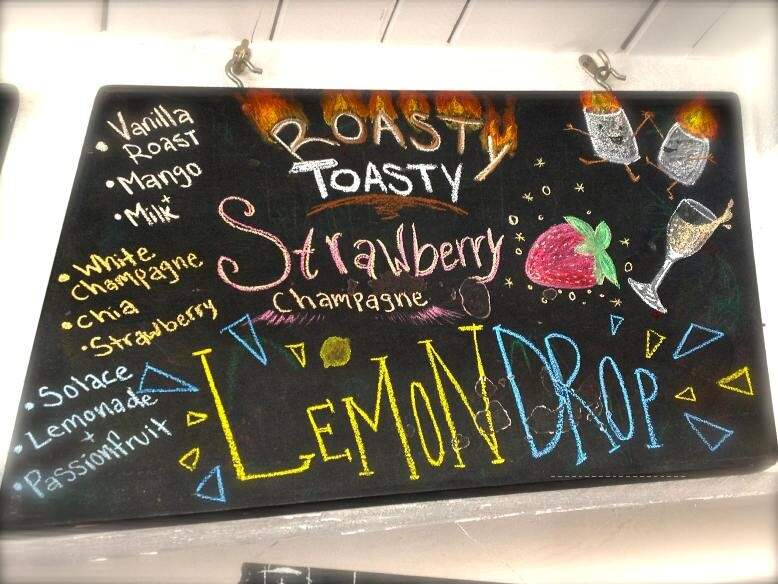 • Vanilla
Roast
• Mango
+
• Milk
• White
Champagne
• Chia
• Strawberry
• Solace
• Lemonade
+
• Passionfruit
ROASTY
TOASTY
Strawberry
Champagne
LEMON DROP